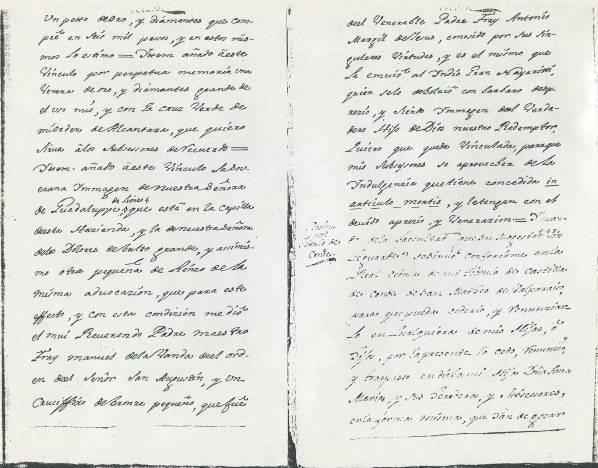 Un petto de oro, y diamantes que com
pré en seis mil pesos, y en estos mis-
mos lo estimo = Ytem añado à este
Vinculo por perpetua memoria una
Venera de oro, y diamantes grande de
el uso mio, y con la cruz Verde de
mi orden de Alcantara, que quiero
sirva à los Subcesores de recuerdo =
Ytem añado à este Vinculo la Sove
rana Ymmagen de nuestra Señora
de Guadaluppe de lienzo, que està en la Capilla
de esta Hazienda, y la de nuestra Señora
de los Dolores de bulto grande, y assimis-
mo otra pequeña de lienzo de la
misma advocazion, que para este
effecto, y con esta condizión me dió
el mui Reverendo Padre maestro
Fray Manuel de la Vanda de el ord-
en de el Señor San Agustin, y un
Cruciffixo de bronze pequeño, que fué
de el Venerable Padre Fray Antonio
Margil de Jesus, conosido por sus sin-
gulares Virtudes, y es el mismo que
le embió al Yndio Gran Nayaritti,
quien se lo debolvió con barbaro desp-
rezio, y siendo Ymmagen de el Verda-
dero Hijo de Dios nuestro Redemptor,
quiero que quede vinculada, para que
mis Subcesores se aprovechen de la
Yndulgenzia que tiene concedida in
articulo mortis, y la tengan con el
devido aprezio, y Venerazion =
Cession
del
titulo de
Conde.
de la facultad que su Magestad Dios
le guarde se sirvió conferirme en la
Real Cedula de mi titulo de Castilla
de Conde de San Matheo de Valparaiso
para que pueda cederlo, y renunciar
lo en qualquiera de mis Hijas, ò
Hijos, por la presente lo cedo, renuncio,
y traspasso en dicha mi Hija Doña Anna
Maria, y sus Herederos, y Subcesores,
en la forma misma, que han de gozar